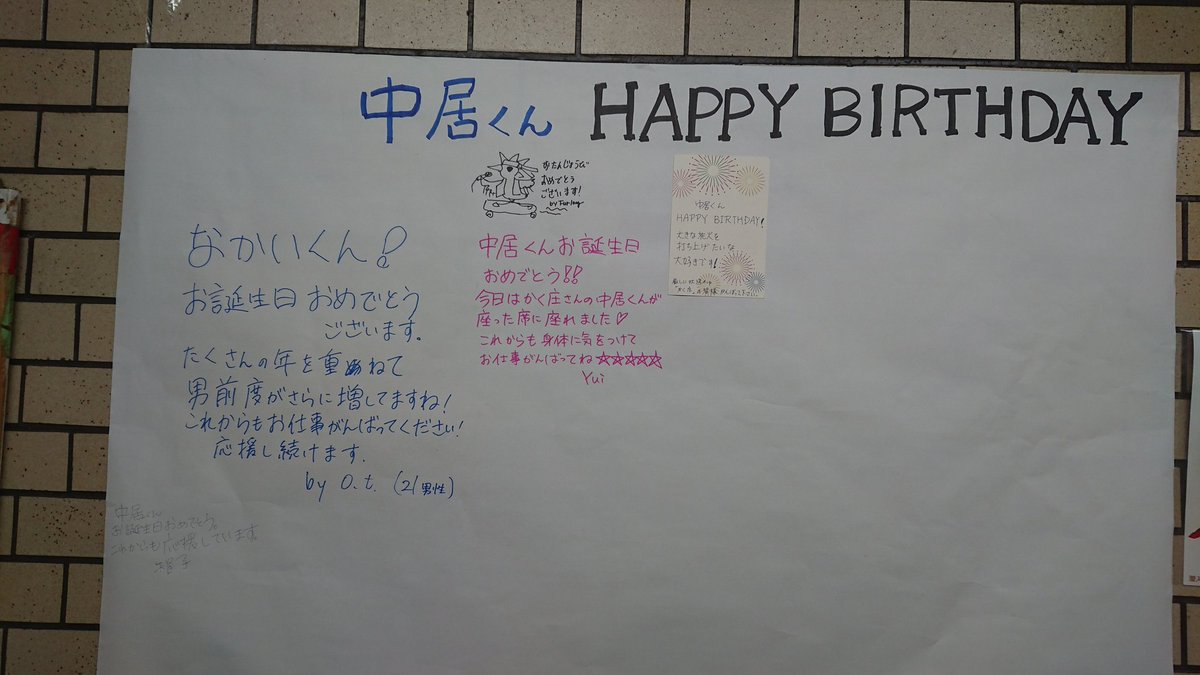 中居くん HAPPY BIRTHDAY
おたんじょうび
おめでとう
ございます!
by
中居くん
HAPPY BIRTHDAY!
大きな花火を
打ち上げたいな
大好きです!
なかいくん!
お誕生日おめでとう
ございます.
たくさんの年を重ねて
男前度がさらに増してますね!
これからもお仕事がんばってください!
応援し続けます.
by O.t. (21男性)
中居くんお誕生日
おめでとう!!
今日はかく庄さんの中居くんが
座った席に座れました♡
これからも身体に気をつけて
お仕事がんばってね☆☆☆☆☆
Yui
中居くん
お誕生日おめでとう。
これからも応援しています